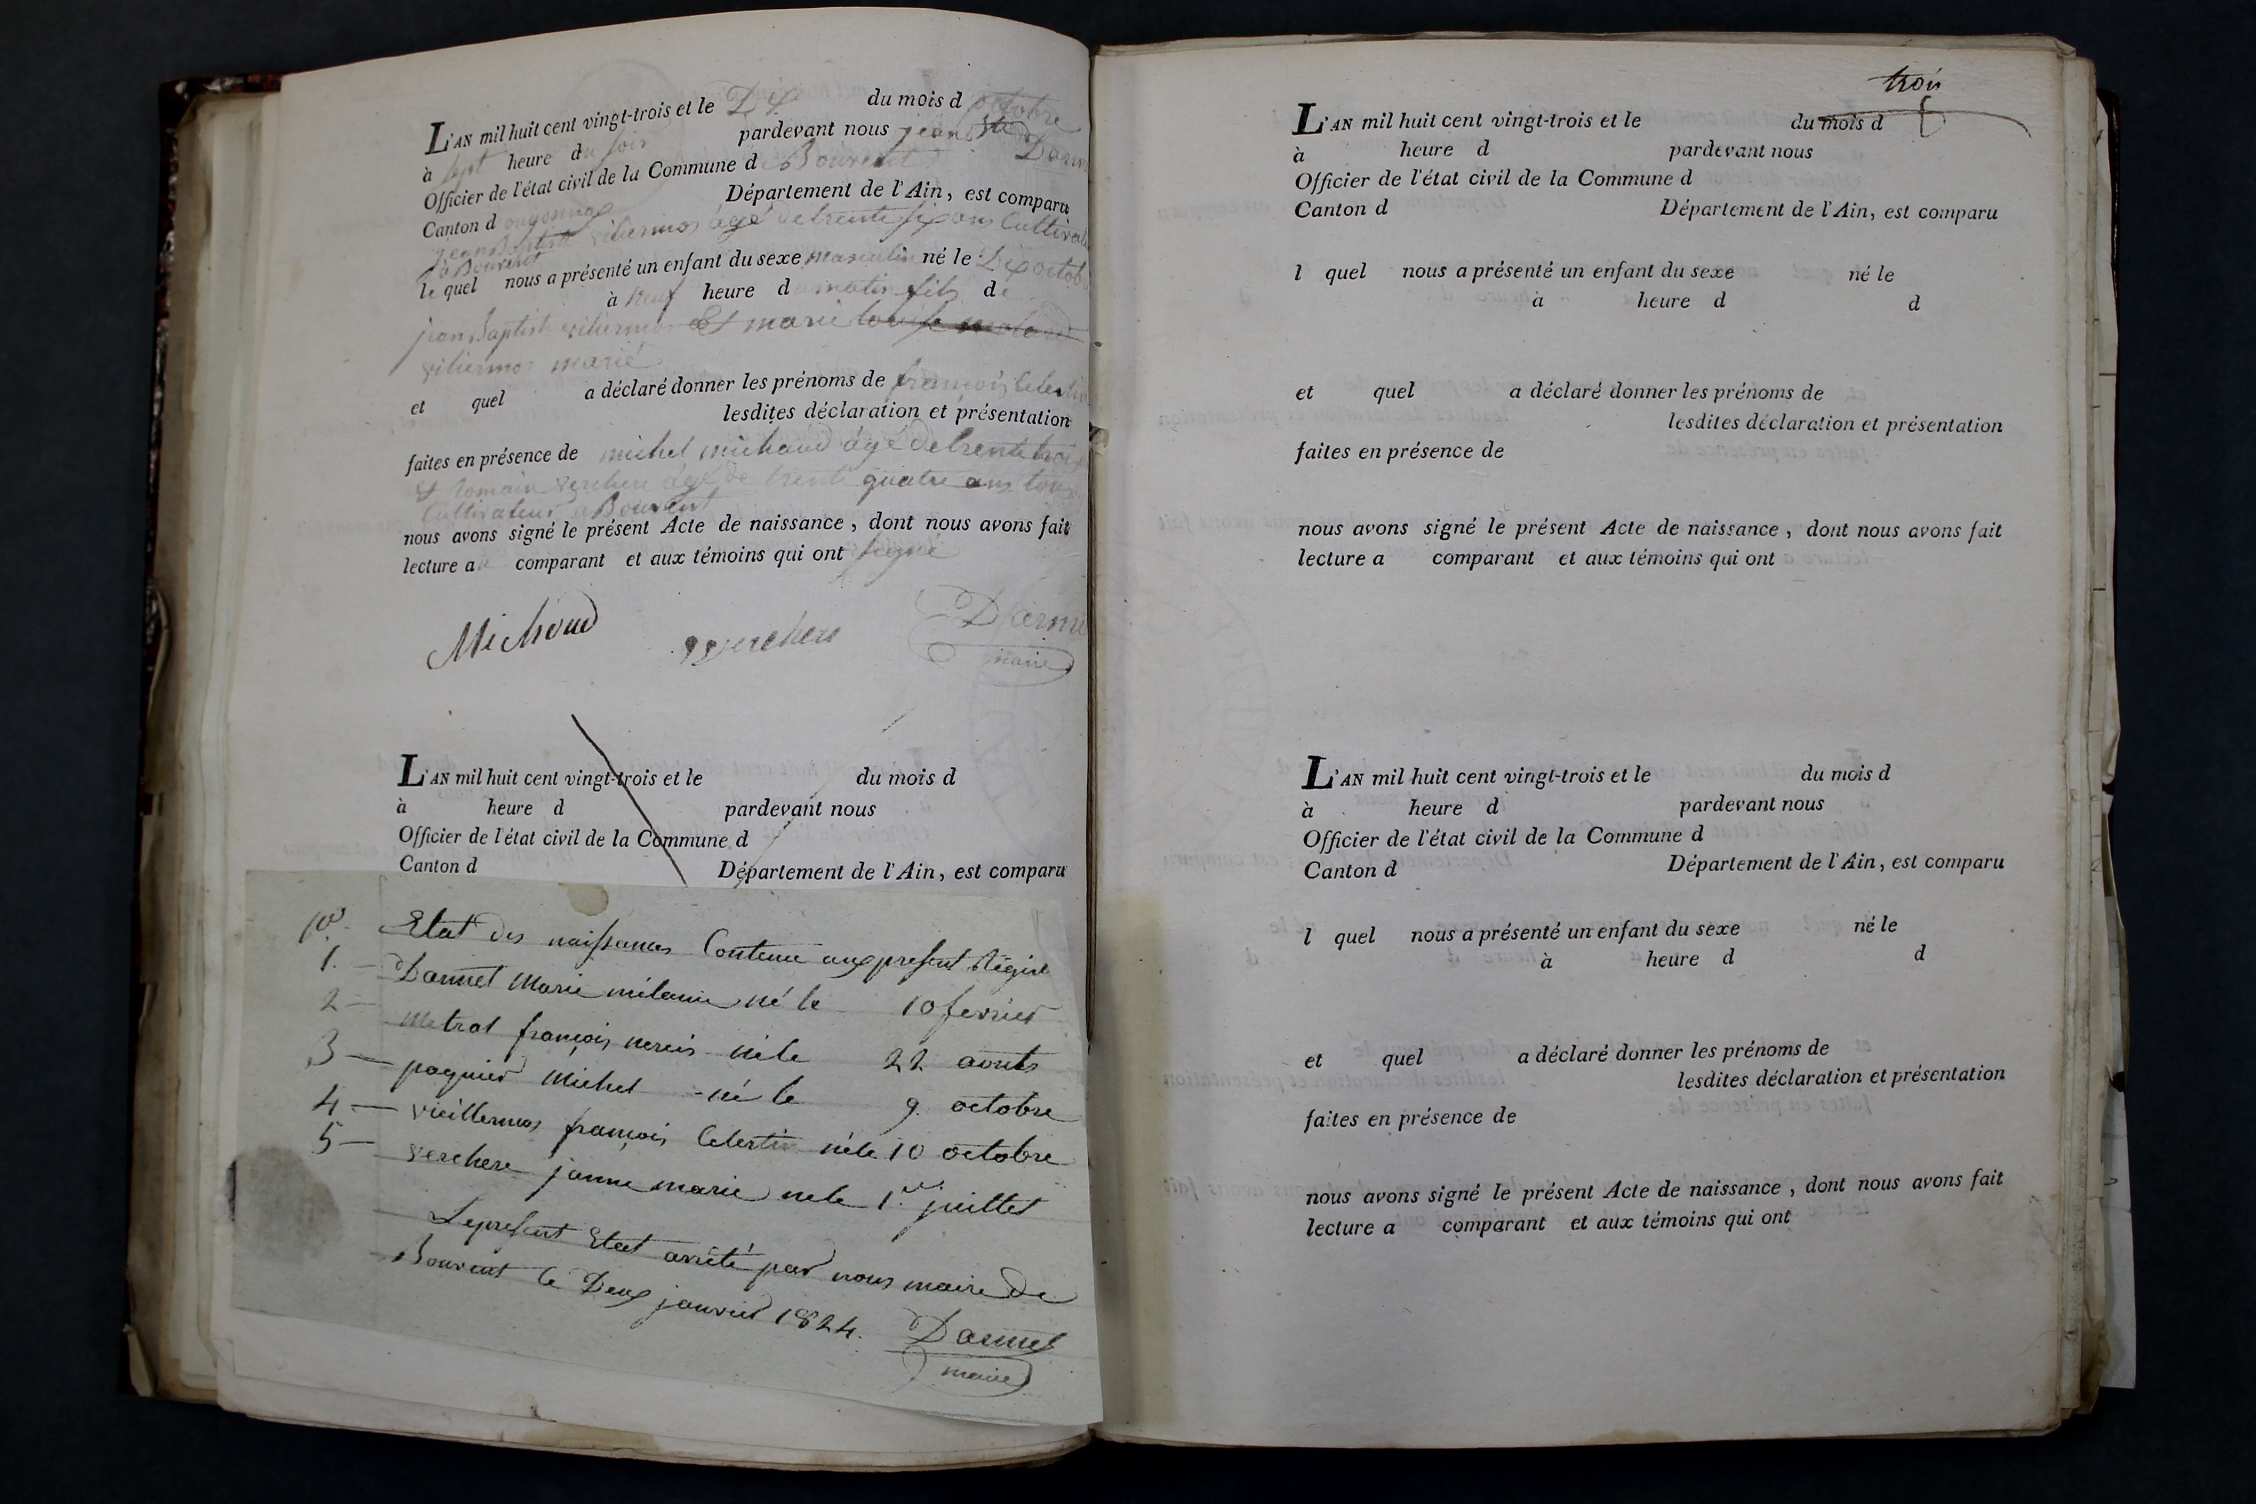 L'AN mil huit cent vingt-trois et le Dix du mois d octobre
à sept heure du soir pardevant nous jean Bte Darm
Officier de l'état civil de la Commune d Bouvent
Canton d oyonnax Département de l'Ain, est comparu
jean Baptiste vilermos âgé de trente six ans Cultivat
à Bouvent
le quel nous a présenté un enfant du sexe masculin né le Dix octob
à neuf heure d matin fils de
jean Baptiste vilermos Et marie
vilermos marié
et quel a déclaré donner les prénoms de françois Celestin
lesdites déclaration et présentation
faites en présence de michel michaud âgé de trente trois
et romain verchere âgé de trente quatre ans tous
Cultivateur a Bouvent
nous avons signé le présent Acte de naissance, dont nous avons fait
lecture au comparant et aux témoins qui ont signé
Michoud verchere
maire
L'AN mil huit cent vingt-trois et le du mois d
à heure d pardevant nous
Officier de l'état civil de la Commune d
Canton d Département de l'Ain, est comparu
Etat des naissances Contenue aux present Régist
1. Darmet Marie mélanie né le 10 fevrier
2 — Metral françois né le 22 aouts
3 — poquier Michel né le 9. octobre
4 — vieillermos françois Celestin né le 10 octobre
5 — verchere janne marie ne le 1er juillet
Le present Etat arrêté par nous maire de
Bouvent le Deux janvier 1824.
Darmet
maire
trois
L'AN mil huit cent vingt-trois et le du mois d
à heure d pardevant nous
Officier de l'état civil de la Commune d
Canton d Département de l'Ain, est comparu
l quel nous a présenté un enfant du sexe né le
à heure d d
et quel a déclaré donner les prénoms de
lesdites déclaration et présentation
faites en présence de
nous avons signé le présent Acte de naissance, dont nous avons fait
lecture a comparant et aux témoins qui ont
L'AN mil huit cent vingt-trois et le du mois d
à heure d pardevant nous
Officier de l'état civil de la Commune d
Canton d Département de l'Ain, est comparu
l quel nous a présenté un enfant du sexe né le
à heure d d
et quel a déclaré donner les prénoms de
lesdites déclaration et présentation
faites en présence de
nous avons signé le présent Acte de naissance, dont nous avons fait
lecture a comparant et aux témoins qui ont